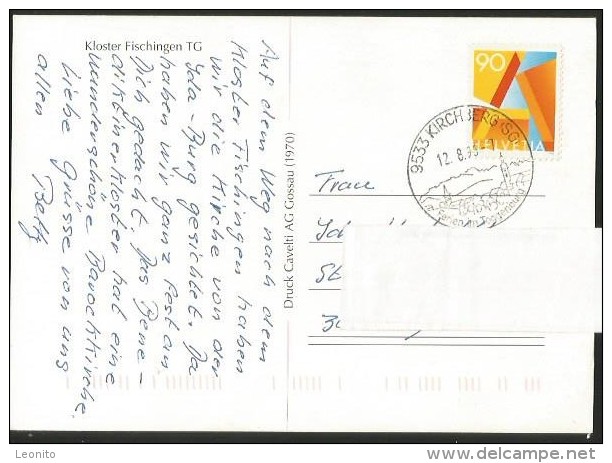 Kloster Fischingen TG
Auf dem Weg nach dem
Kloster Fischingen haben
wir die Kirche von der
Ida-Burg gesichtet. Da
haben wir ganz fest an
Dich gedacht. Das Bene-
diktinerkloster hat eine
wunderschöne Barockkirche.
Liebe Grüsse von uns
allen
Betty
Druck Cavelti AG Gossau (1970)
90
HELVETIA
9533 KIRCHBERG SG
12.8.95
Frau
Leonito
www.delcampe.net